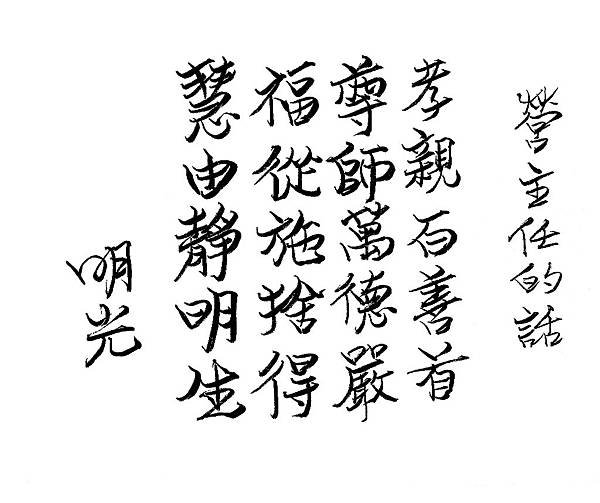 營主任的話
孝親百善首
尊師萬德嚴
福從施捨得
慧由靜明生
明光